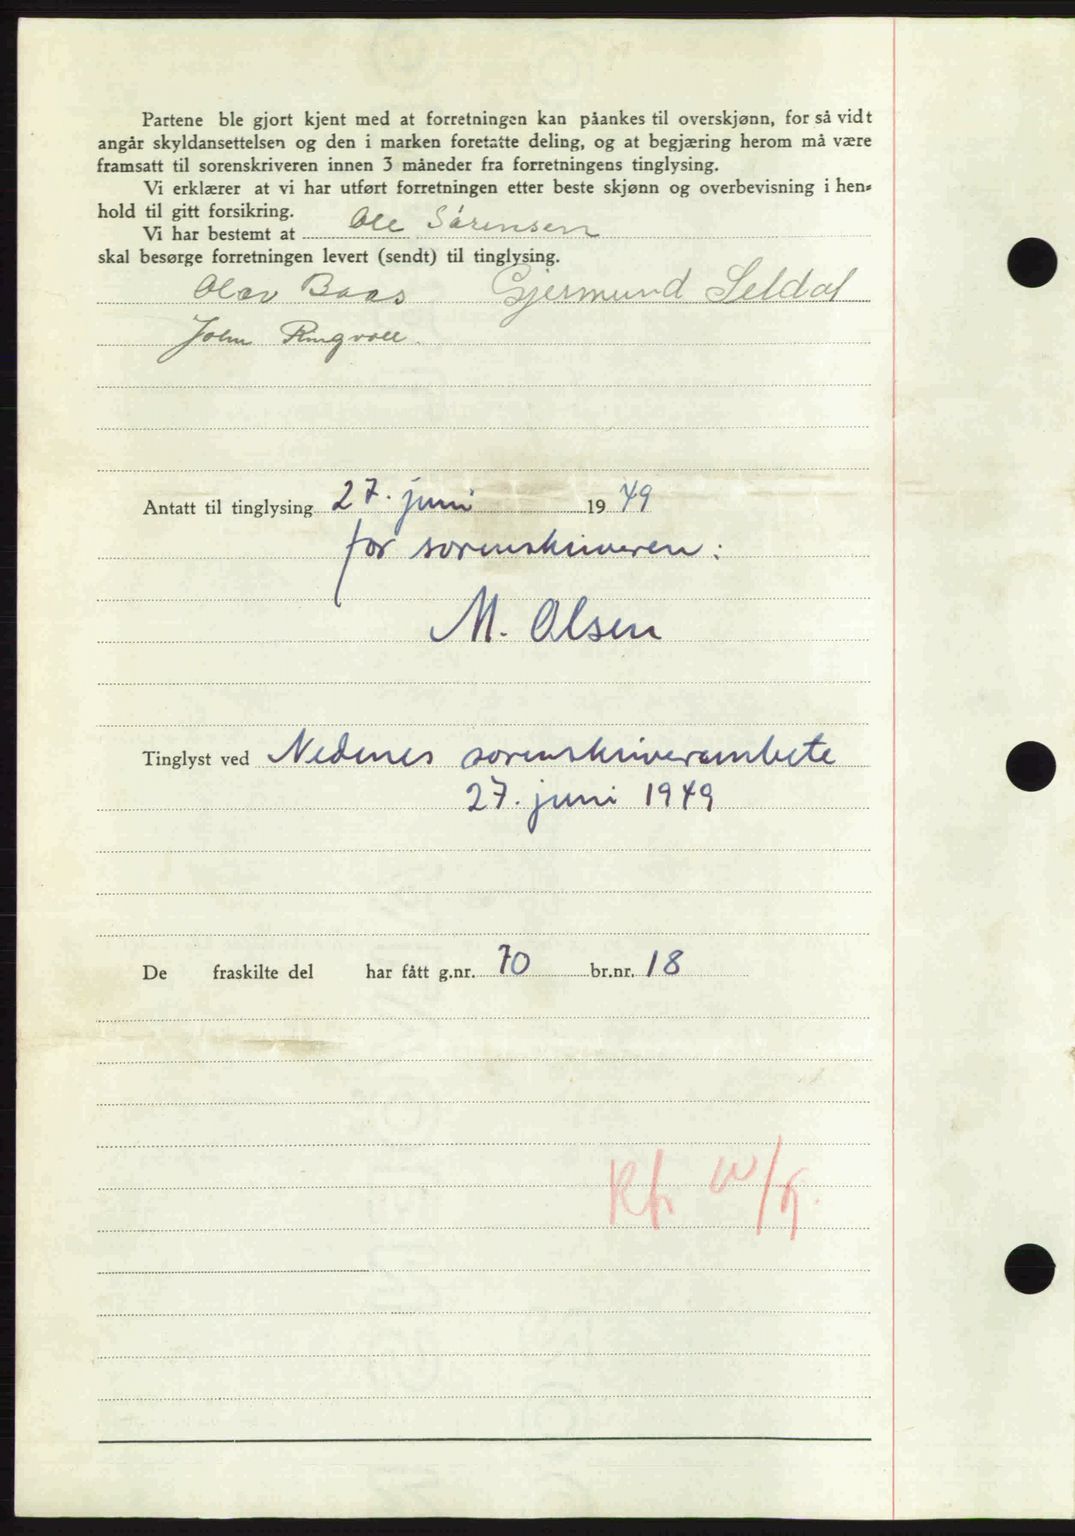 Partene ble gjort kjent med at forretningen kan påankes til overskjønn, for så vidt
angår skyldansettelsen og den i marken foretatte deling, og at begjæring herom må være
framsatt til sorenskriveren innen 3 måneder fra forretningens tinglysing.
Vi erklærer at vi har utført forretningen etter beste skjønn og overbevisning i hen-
hold til gitt forsikring.
Vi har bestemt at Ole Sørensen
skal besørge forretningen levert (sendt) til tinglysing.
Olav Baas Gjermund Seldal
John Ringvoll.
Antatt til tinglysing 27. juni 1949
for sorenskriveren:
M. Olsen
Tinglyst ved Nedenes sorenskriverembete
27. juni 1949
De fraskilte del har fått g.nr. 70 br.nr. 18